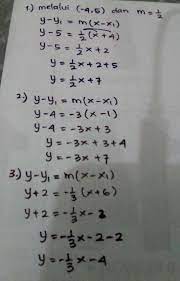 1.) melalui (-4,5) dan m = 1/2
y-y₁ = m(x-x₁)
y-5 = 1/2(x+4)
y-5 = 1/2x+2
y = 1/2x+2+5
y = 1/2x+7
2.) y-y₁ = m(x-x₁)
y-4 = -3(x-1)
y-4 = -3x+3
y = -3x+3+4
y = -3x+7
3.) y-y₁ = m(x-x₁)
y+2 = -1/3(x+6)
y+2 = -1/3x-2
y = -1/3x-2-2
y = -1/3x-4